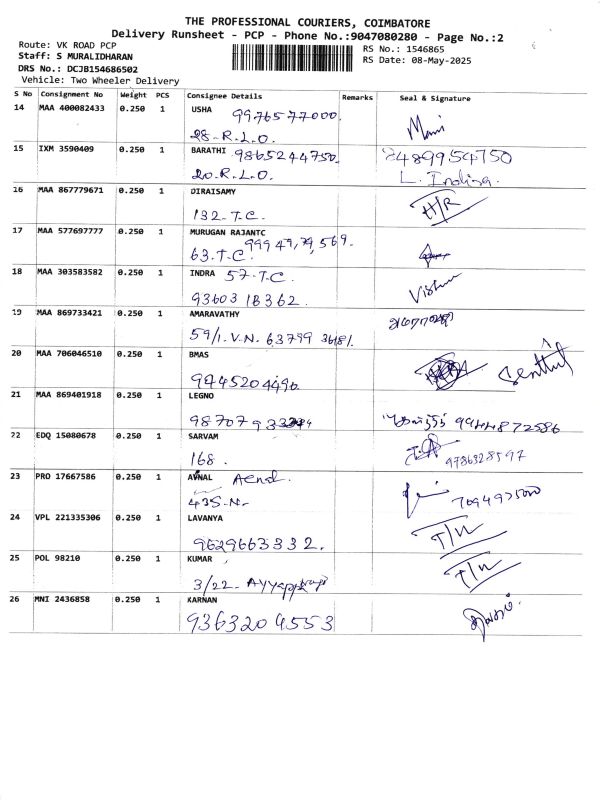 THE PROFESSIONAL COURIERS, COIMBATORE
Delivery Runsheet - PCP - Phone No.:9047080280 - Page No.:2
Route: VK ROAD PCP
RS No.: 1546865
Staff: S MURALIDHARAN
RS Date: 08-May-2025
DRS No.: DCJB154686502
Vehicle: Two Wheeler Delivery
S No Consignment No Weight PCS Consignee Details Remarks Seal & Signature
14 MAA 400082433 0.250 1 USHA 9976577000.
28-R.L.O. Mani
15 IXM 3590409 0.250 1 BARATHI 9865244750. 8489954750
20.R.L.O.
16 MAA 867779671 0.250 1 DIRAISAMY H/R
132-T.C.
17 MAA 577697777 0.250 1 MURUGAN RAJANTC
63.T.C. 99949,79,569.
18 MAA 303583582 0.250 1 INDRA 57-T.C
93603 18362.
19 MAA 869733421 0.250 1 AMARAVATHY
59/1.V.N. 63799 36181.
20 MAA 706046510 0.250 1 BMAS
9945204490. Senthil
21 MAA 869401918 0.250 1 LEGNO 9944872586
22 EDQ 15080678 0.250 1 SARVAM
168. 9786328597
23 PRO 17667586 0.250 1
435-N-
24 VPL 221335306 0.250 1 LAVANYA
9629663332.
25 POL 98210 0.250 1 KUMAR
3/22.
26 MNI 2436858 0.250 1 KARNAN
9363204553